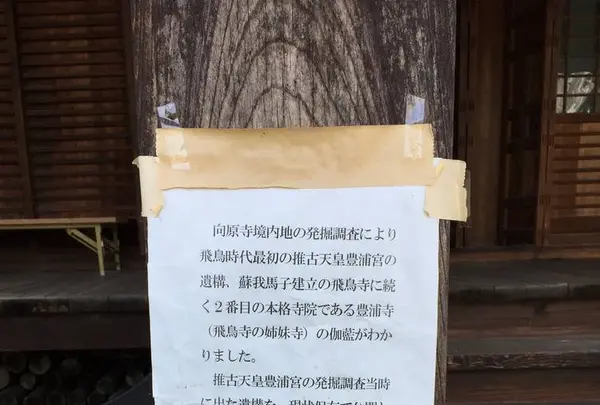 向原寺境内地の発掘調査により
飛鳥時代最初の推古天皇豊浦宮の
遺構、蘇我馬子建立の飛鳥寺に続
く２番目の本格寺院である豊浦寺
（飛鳥寺の姉妹寺）の伽藍がわか
りました。
推古天皇豊浦宮の発掘調査当時
に出た遺構を、現状保存で公開し